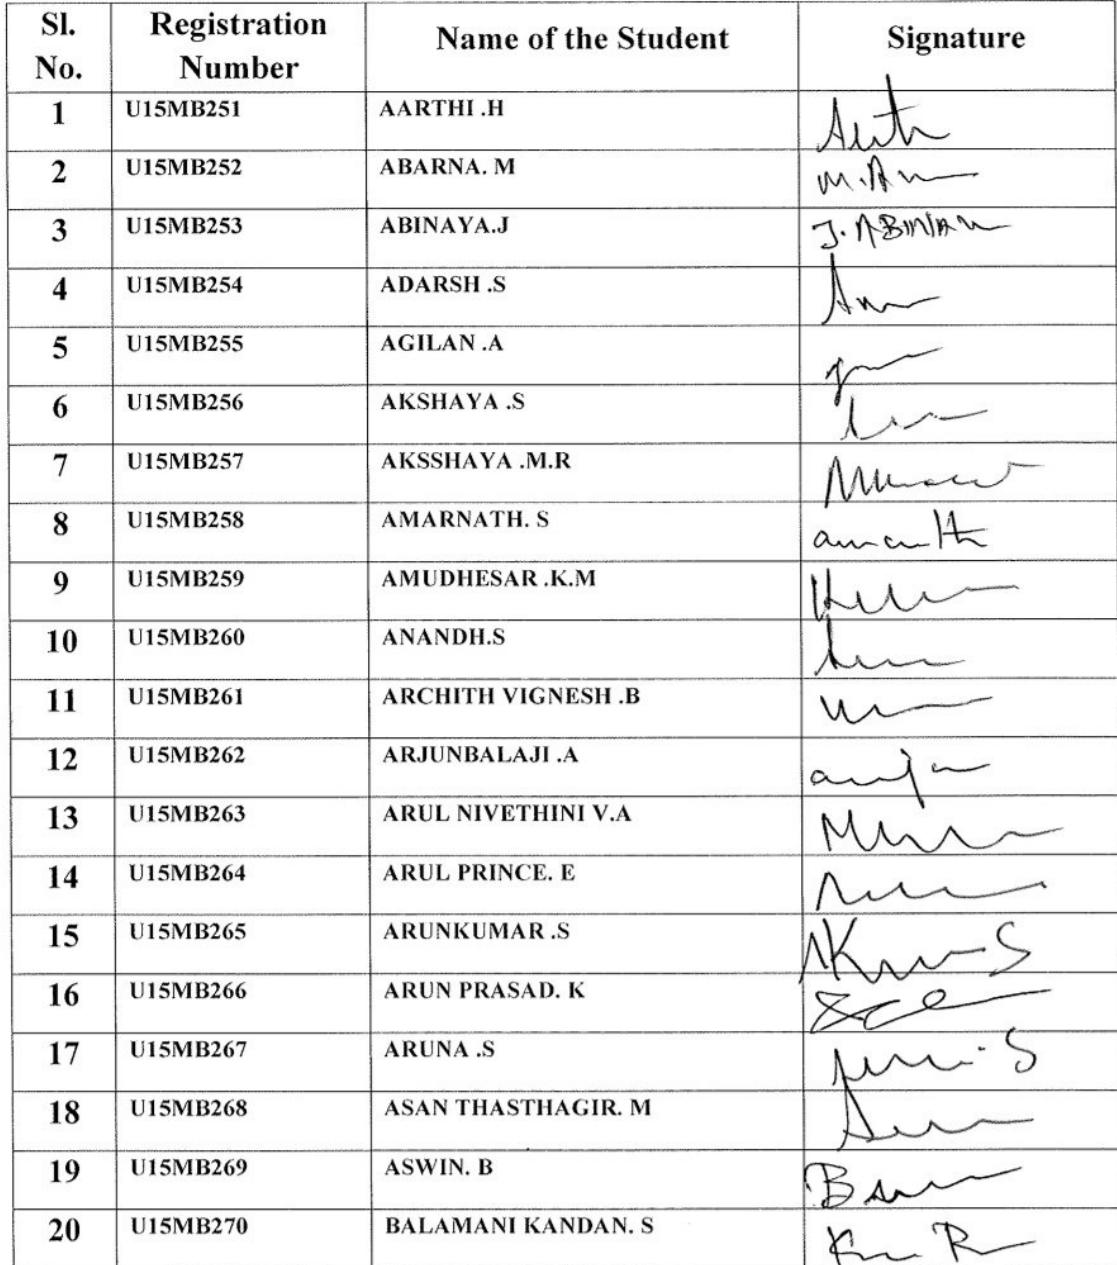 Sl. No. Registration Number Name of the Student Signature
1 U15MB251 AARTHI .H
2 U15MB252 ABARNA. M
3 U15MB253 ABINAYA.J
4 U15MB254 ADARSH .S
5 U15MB255 AGILAN .A
6 U15MB256 AKSHAYA .S
7 U15MB257 AKSSHAYA .M.R
8 U15MB258 AMARNATH. S
9 U15MB259 AMUDHESAR .K.M
10 U15MB260 ANANDH.S
11 U15MB261 ARCHITH VIGNESH .B
12 U15MB262 ARJUNBALAJI .A
13 U15MB263 ARUL NIVETHINI V.A
14 U15MB264 ARUL PRINCE. E
15 U15MB265 ARUNKUMAR .S
16 U15MB266 ARUN PRASAD. K
17 U15MB267 ARUNA .S
18 U15MB268 ASAN THASTHAGIR. M
19 U15MB269 ASWIN. B
20 U15MB270 BALAMANI KANDAN. S